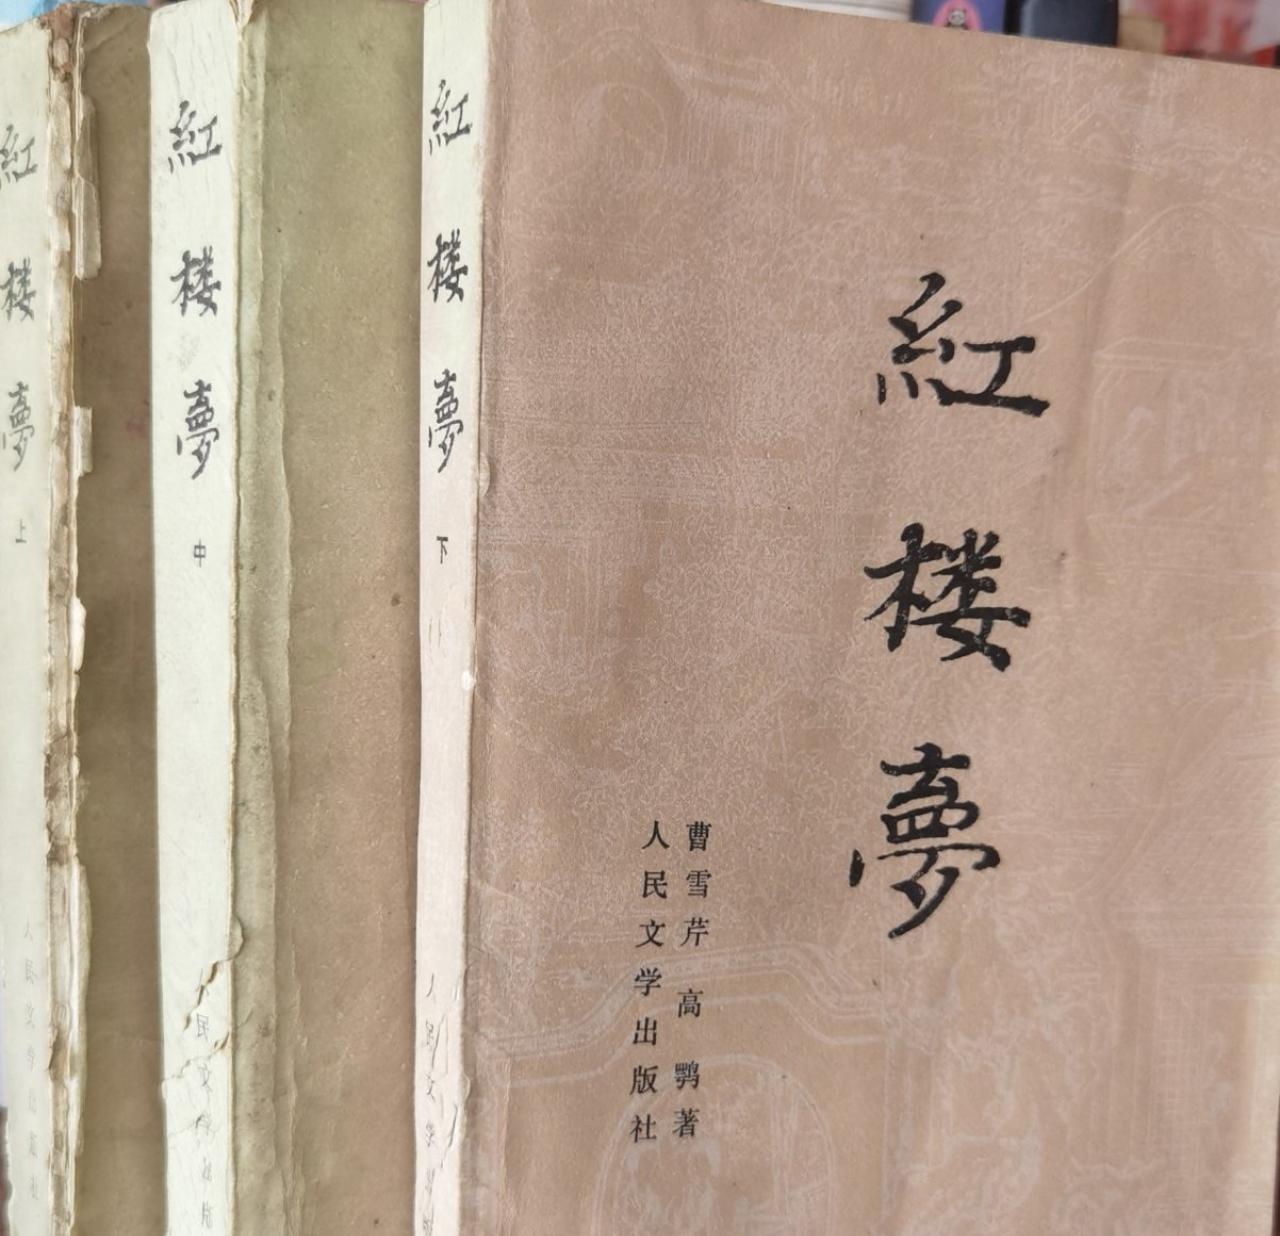 紅楼夢
上
人民文学出版社
紅楼夢
中
人民文学出版
紅楼夢
下
人民文学出版
紅楼夢
曹雪芹 高鹗著
人民文学出版社